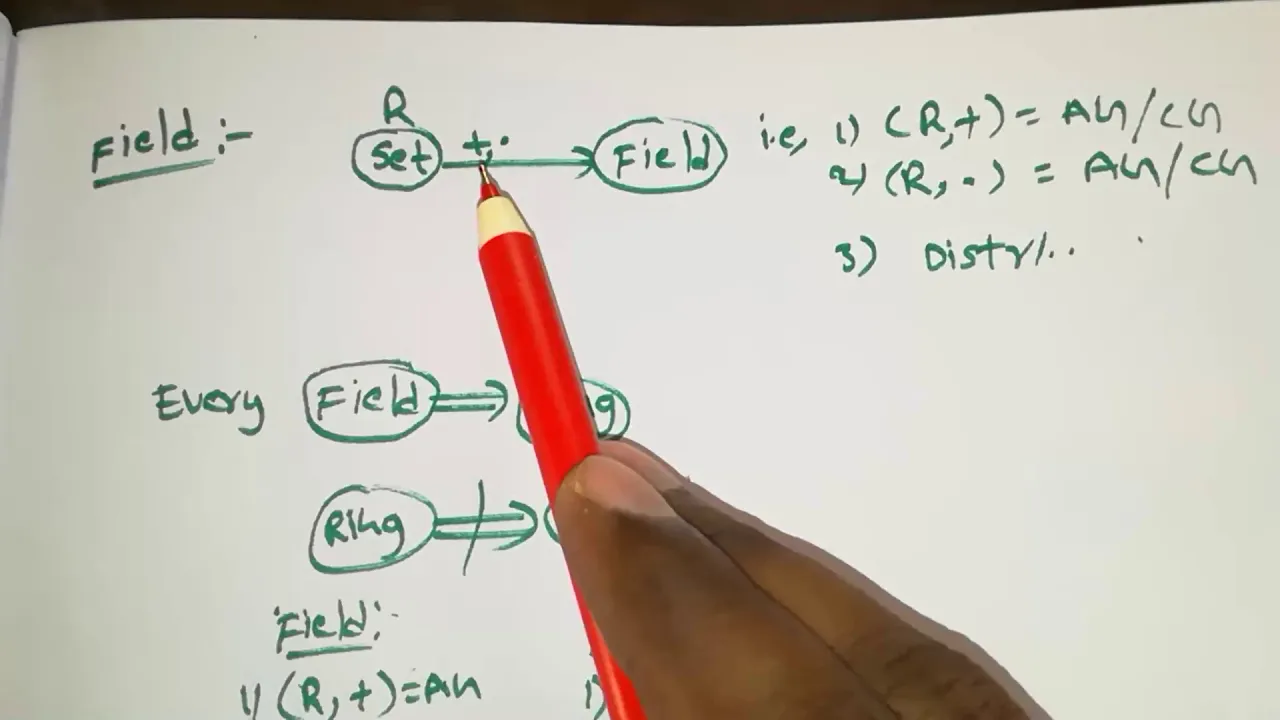 Field :-
R
Set +, . Field
i.e, 1) (R,+) = AG/CG
2) (R, .) = AG/CG
3) Distr/..
Every Field ⇒
Ring
Field :-
1) (R, +) = AG 1)